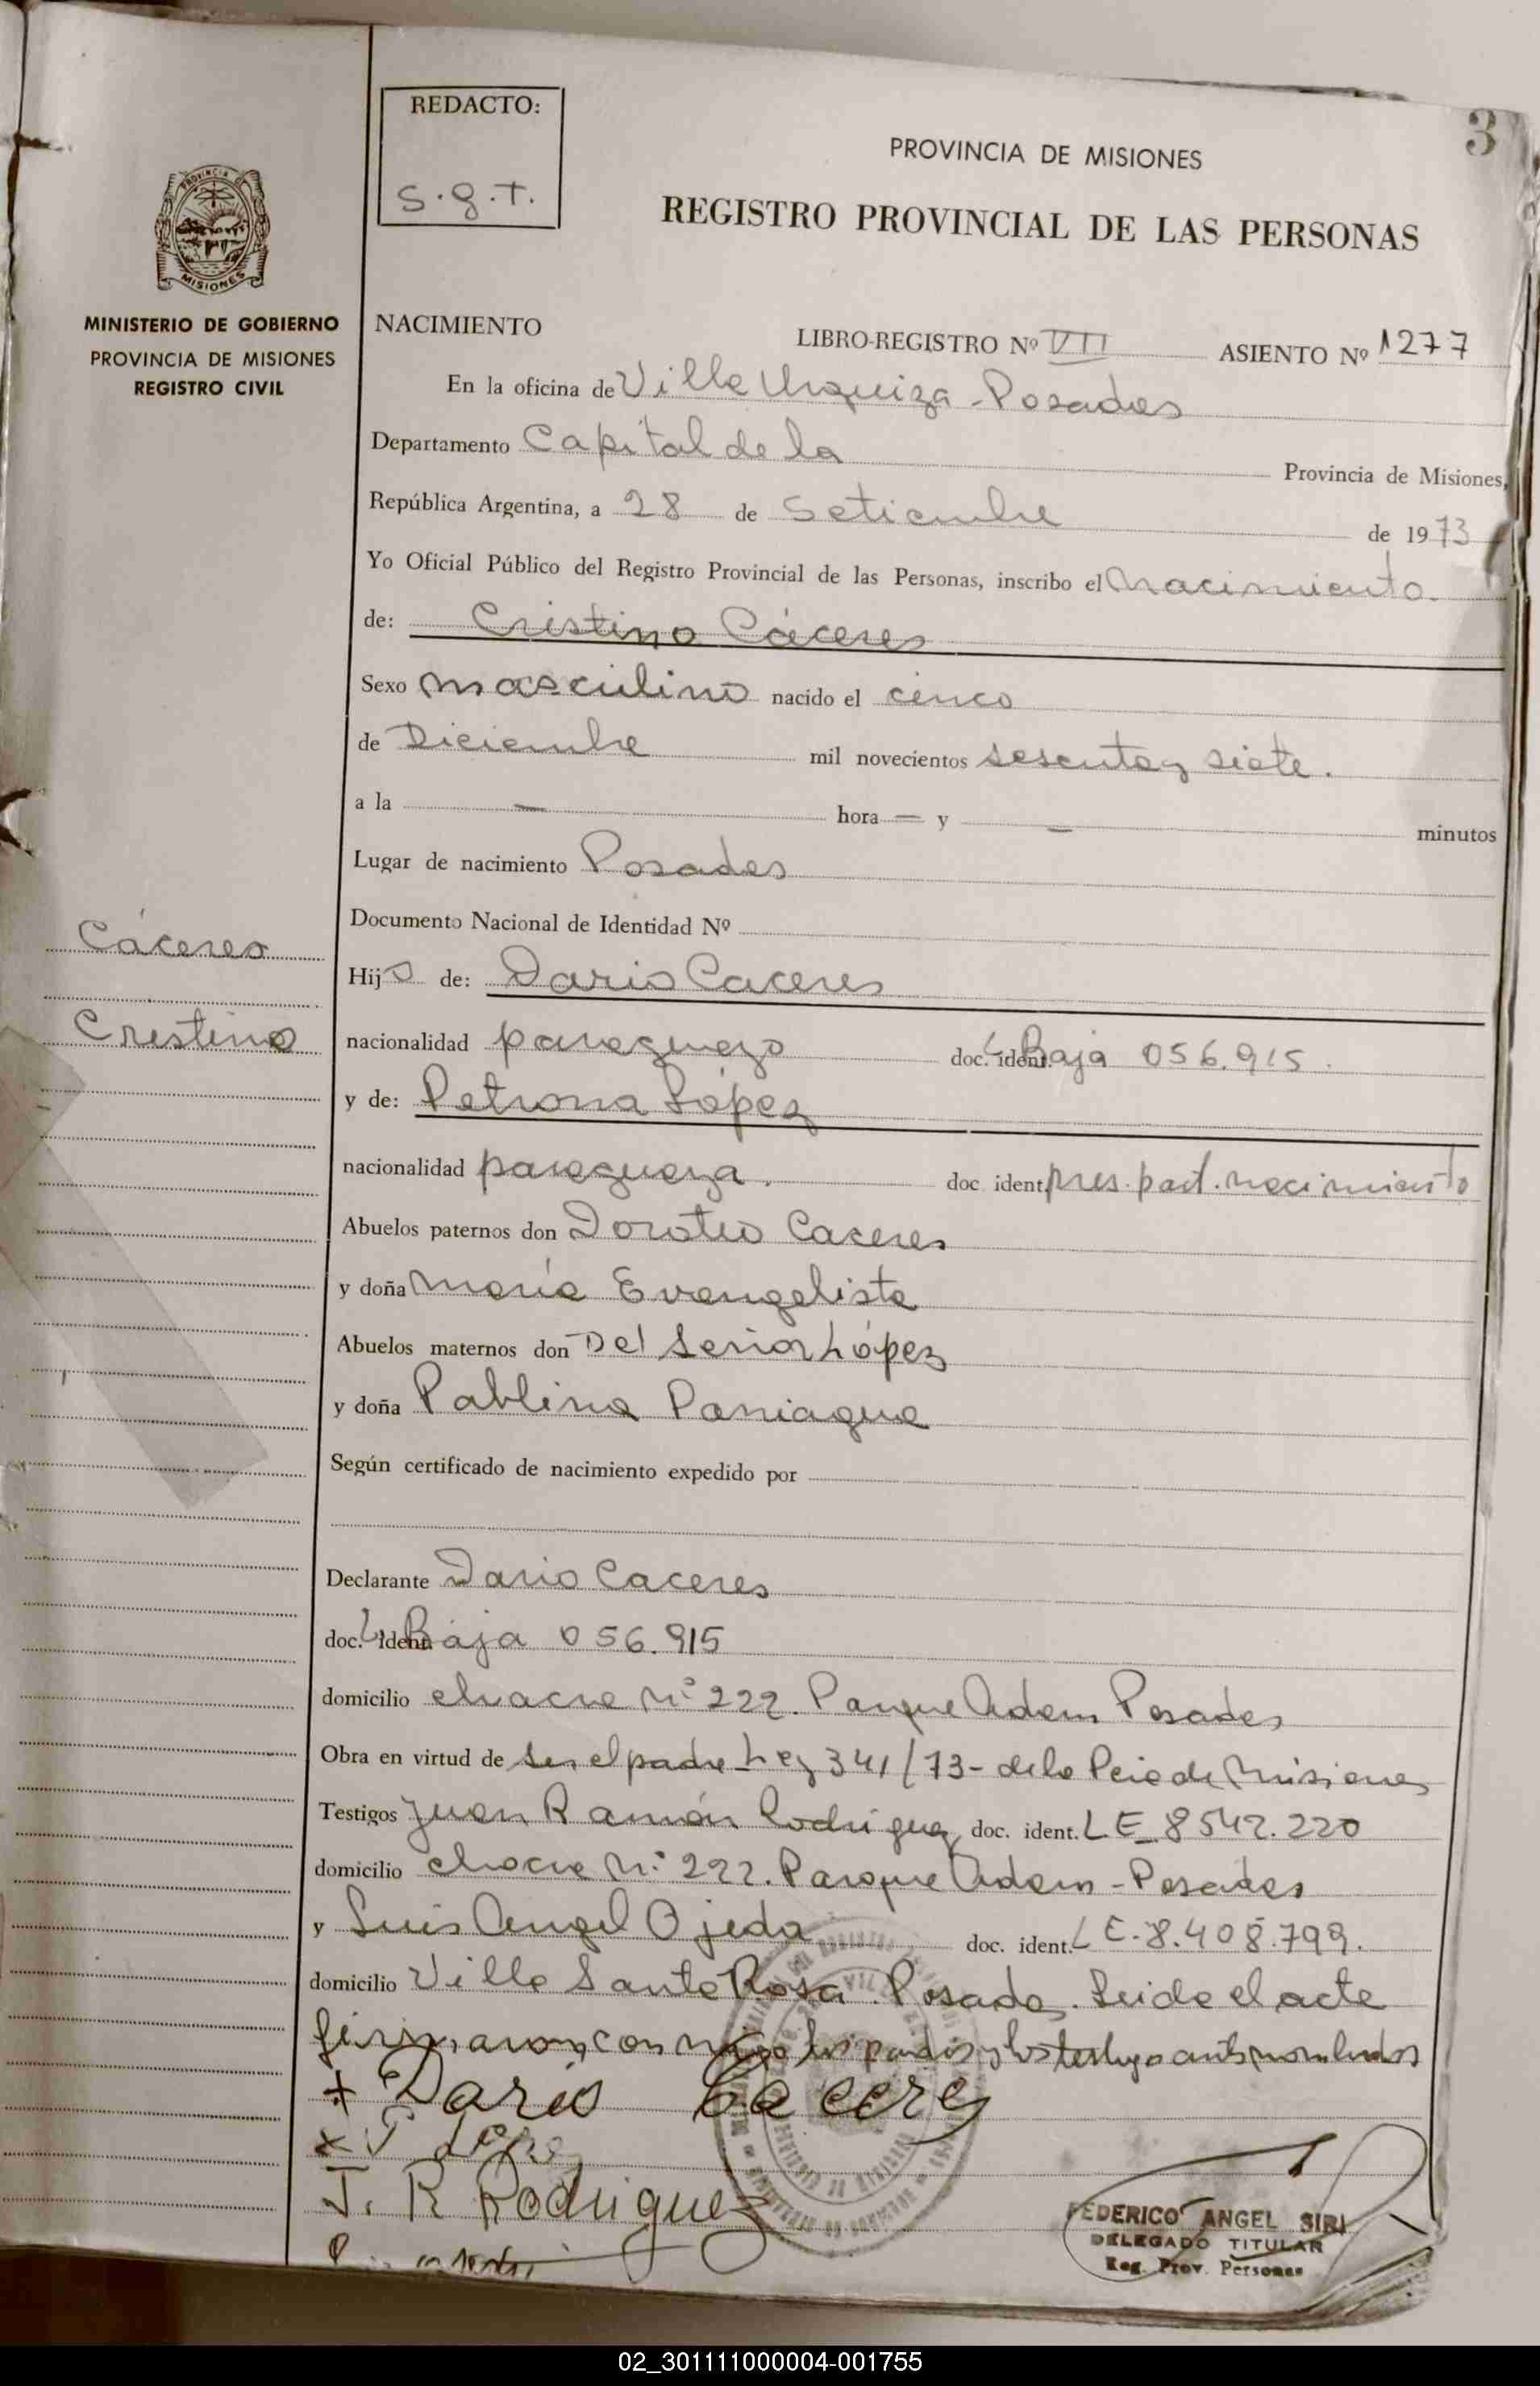 REDACTO:
S.g.T.
3
PROVINCIA DE MISIONES
REGISTRO PROVINCIAL DE LAS PERSONAS
PROVINCIA DE
MISIONES
MINISTERIO DE GOBIERNO
PROVINCIA DE MISIONES
REGISTRO CIVIL
NACIMIENTO LIBRO-REGISTRO Nº VII ASIENTO Nº 1277
En la oficina de Villa Urquiza - Posadas
Departamento Capital de la Provincia de Misiones,
República Argentina, a 28 de Setiembre de 1973
Yo Oficial Público del Registro Provincial de las Personas, inscribo el nacimiento.
de: Cristino Cáceres
Sexo masculino nacido el cinco
de Diciembre mil novecientos sesenta y siete.
a la — hora — y — minutos
Lugar de nacimiento Posadas
Documento Nacional de Identidad Nº
Cáceres
Hijo de: Dario Caceres
Cristino
nacionalidad paraguayo doc. ident. L. Baja 056.915.
y de: Petrona López
nacionalidad paraguaya. doc ident. pres. part. nacimiento
Abuelos paternos don Doroteo Caceres
y doña María Evangelista
Abuelos maternos don Del Señor López
y doña Pablina Paniagua
Según certificado de nacimiento expedido por
Declarante Dario Caceres
doc. ident. L. Baja 056.915
domicilio chacra Nº 222. Parque Adam Posadas
Obra en virtud de ser el padre Ley 341/73 - de la Pcia de Misiones
Testigos Juan Ramón Rodriguez doc. ident. LE 8542.220
domicilio chacra Nº 222. Parque Adam - Posadas
y Luis Angel Ojeda doc. ident. LE-8.408.799.
domicilio Villa Santa Rosa. Posadas. Leida el acta
firmaron con migo los padres y los testigos antes nombrados
+ Dario Caceres
x P López
J. R Rodriguez
FEDERICO ANGEL SIRI
DELEGADO TITULAR
Reg. Prov. Personas
02_301111000004-001755